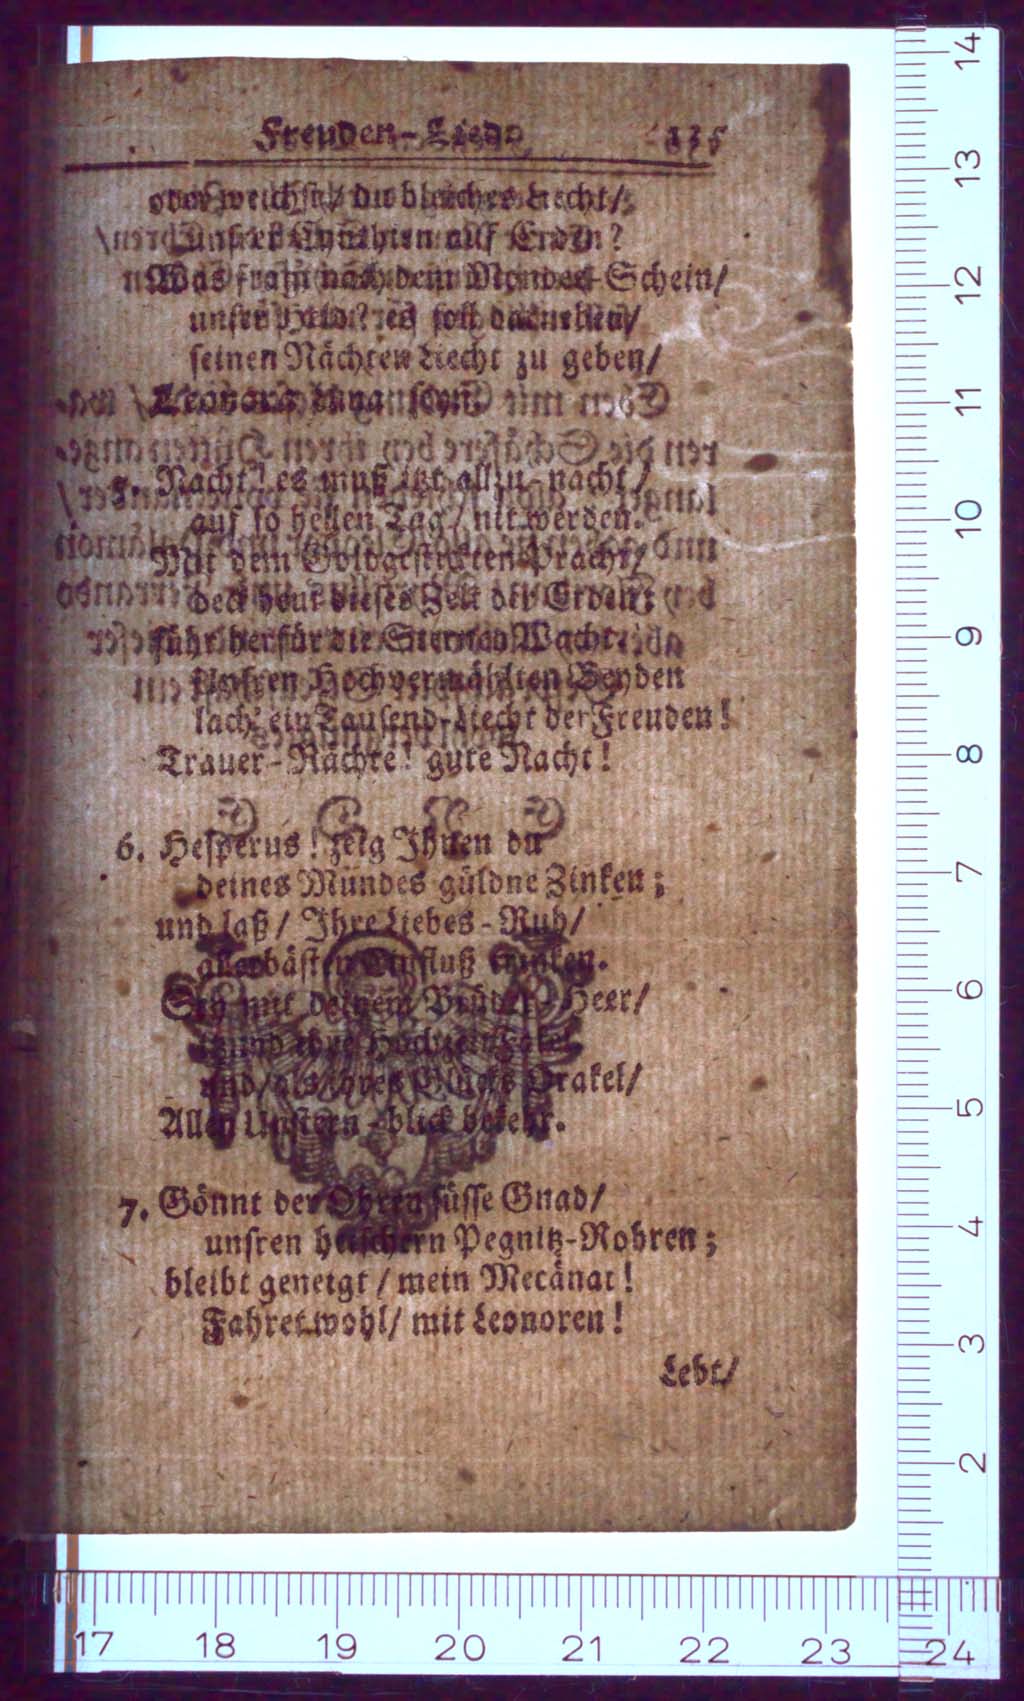 Freuden-Lied. 135
oder weichstu / du bleiches Liecht /
unsrer Cynthien auf Erden?
Was frag nach dem Mondes-Schein /
unsrer es soll
seinen Nächten Liecht zu geben /
Leonora Luna seyn.
5. Nacht! es muß itzt allzu-nacht /
auf so hellen Tag / nit werden.
Mit dem Goldgestickten Pracht /
deck heut dieses Zelt der Erden:
führ herfür die Sternen Wacht.
Unsren Hochvermählten Beyden
lach' ein Tausend-Liecht der Freuden!
Trauer-Nächte! gute Nacht!
6. Hesperus! zeig Ihnen du
deines Mundes güldne Zinken;
und laß / Ihre Liebes-Ruh /
allerbästen Einfluß trinken.
Sey mit deinem Brüder-Heer /
und ihre Hochzeit
und / als ihres Glücks Orakel /
Allen Unstern-blick bekehr.
7. Gönnt der Ohren süsse Gnad /
unsren heischern Pegnitz-Rohren;
bleibt geneigt / mein Mecänat!
Fahret wohl / mit Leonoren!
Lebt /
14
13
12
11
10
9
8
7
6
5
4
3
2
17 18 19 20 21 22 23 24